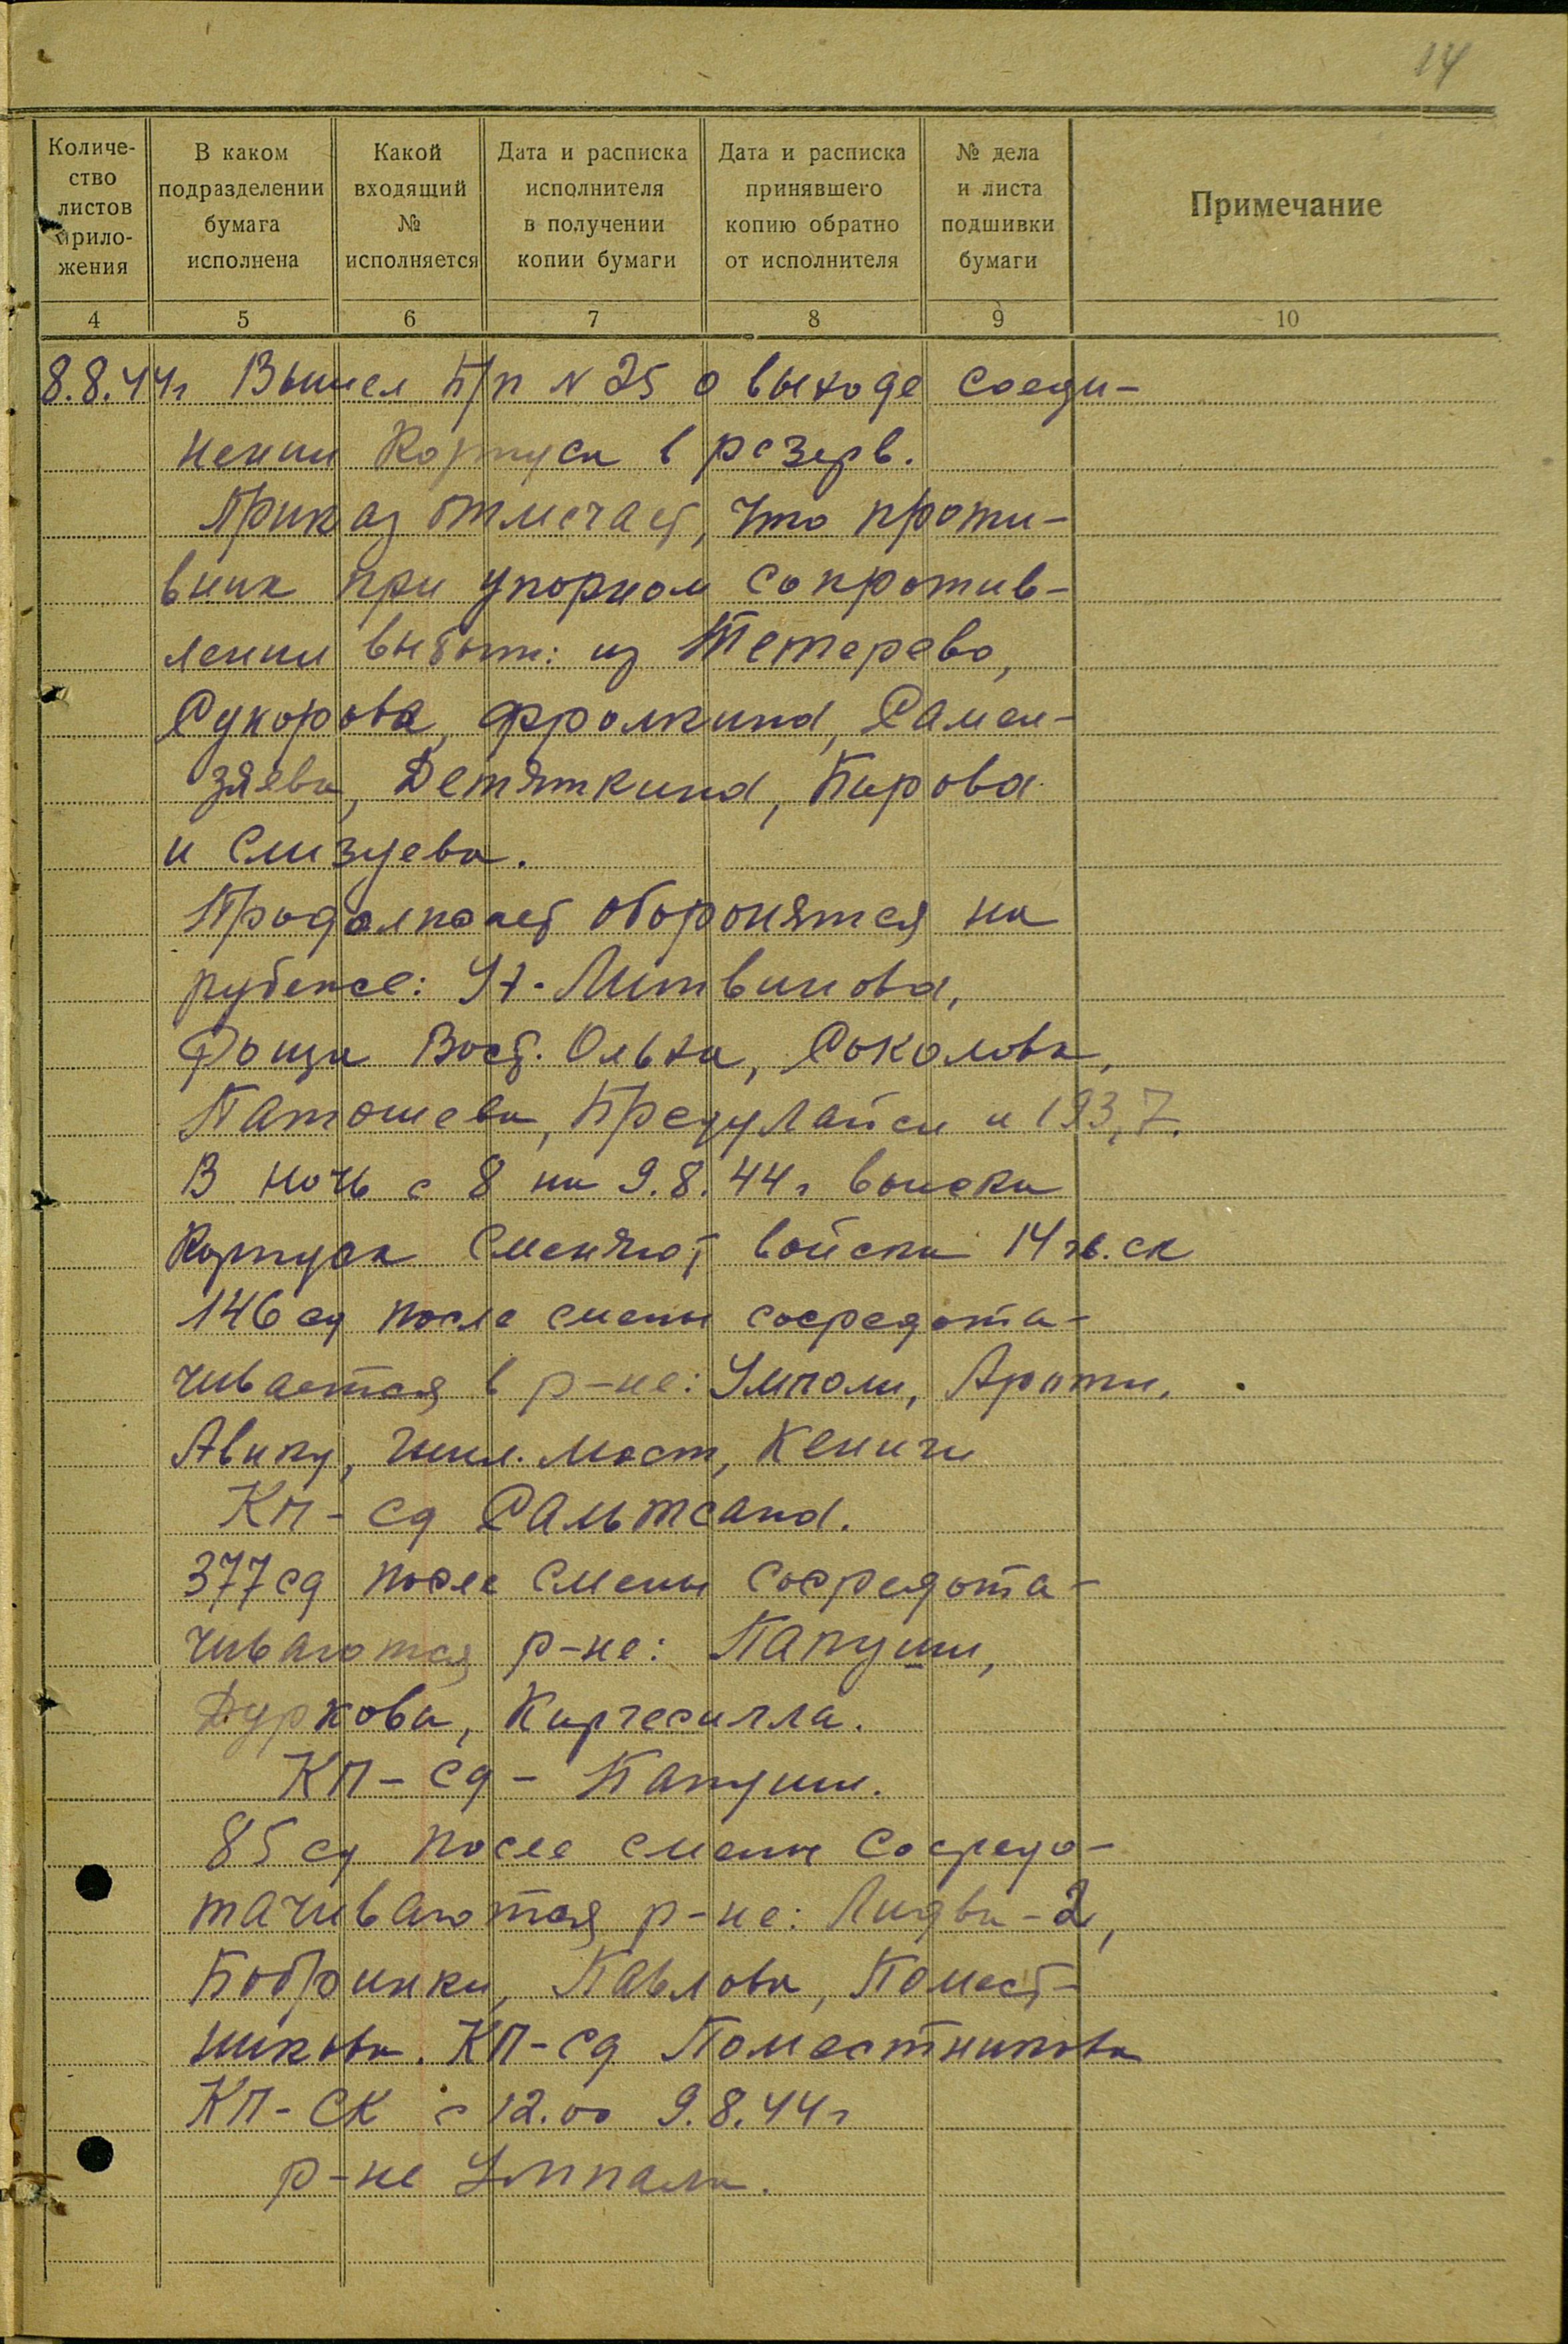 14
Количе-
ство
листов
прило-
жения
В каком
подразделении
бумага
исполнена
Какой
входящий
№
исполняется
Дата и расписка
исполнителя
в получении
копии бумаги
Дата и расписка
принявшего
копию обратно
от исполнителя
№ дела
и листа
подшивки
бумаги
Примечание
4 5 6 7 8 9 10
8.8.44г Вышел Б/п N 25 о выходе соеди-
нении Корпуса в резерв.
Приказ отмечает, что проти-
вник при упорном сопротив-
лении выбит: из Тетерево,
Сукорова, Фролкина, Самен-
зяева, Детяткина, Кирова
и Слизуева.
Продолжает оборонятся на
рубеже: Литвинова,
Рощи Вост. Ольха, Соколова,
Патошева, и 193,7.
В ночь с 8 на 9.8.44г войска
Корпуса сменяют войска 14 гв. ск
146 сд после смены сосредота-
чивается в р-не: Умполи, Арпоти,
Авику, жел. мост, Кенигк
КП-сд Сальтсана.
377 сд после смены сосредота-
чиваются р-не: Папуши,
Дуркова, Киргесилла.
КП-сд - Папуши.
85 сд после смены Сосредо-
тачиваются р-не: Лидва-2,
Бобринки, Павлова, Помест-
никова. КП-сд Поместникова
КП-СК с 12.00 9.8.44г
р-не Умпали.